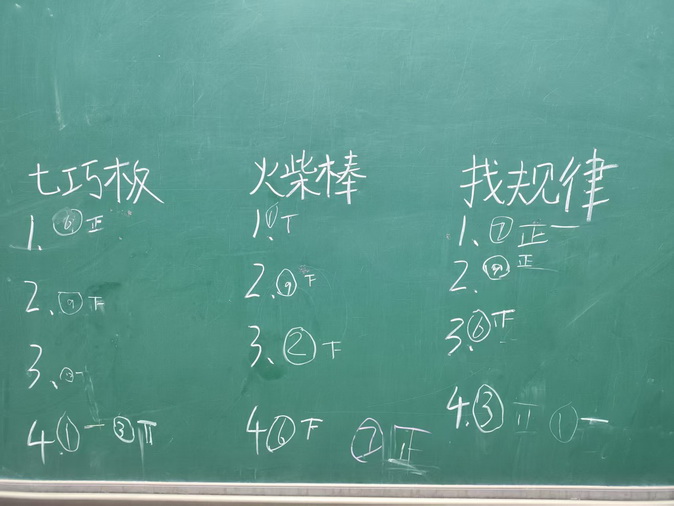 七巧板
1. ⑥ 正
2. ⑨ 下
3.
4. ① 一 ③
火柴棒
1. ① 丅
2. ⑨ 下
3. ② 下
4. ⑥ 下 ⑦ 正
找规律
1. ⑦ 正一
2. 正
3. ⑥ 正
4. ③ ① 一